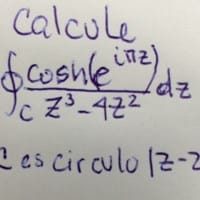 Calcule
∮_C cosh(e^{iπz}) / (z³-4z²) dz
C es circulo |z-2